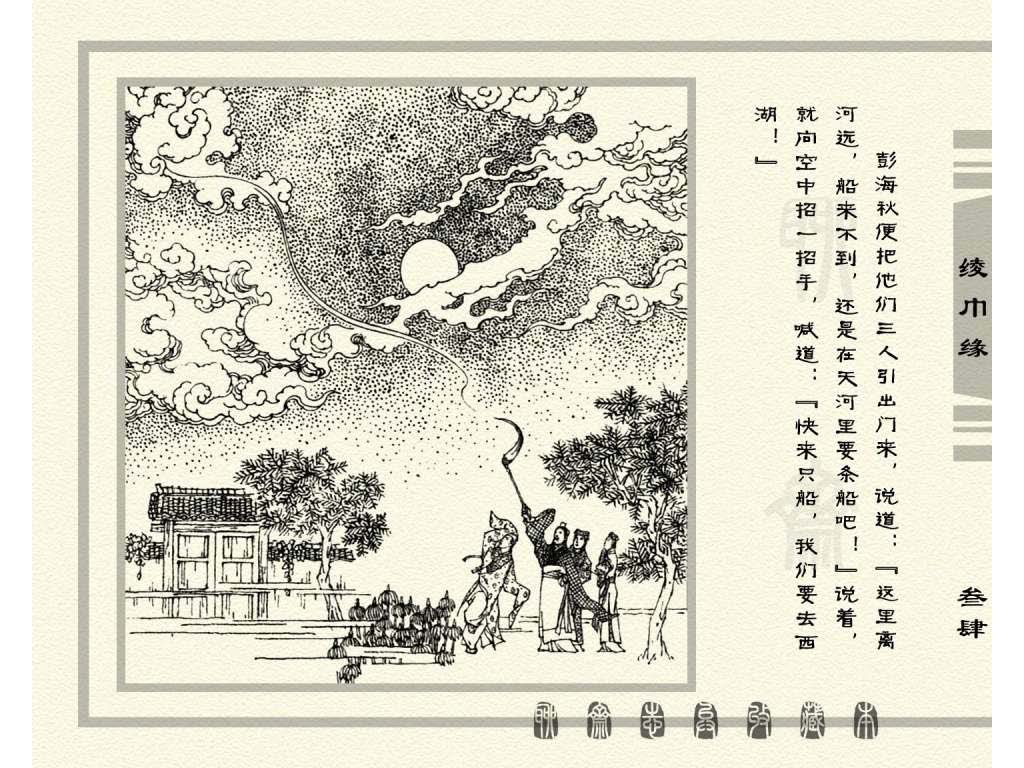 彭海秋便把他们三人引出门来，说道：『这里离
河远，船来不到，还是在天河里要条船吧！』说着，
就向空中招一招手，喊道：『快来只船，我们要去西
湖！』
绫巾缘
叁肆